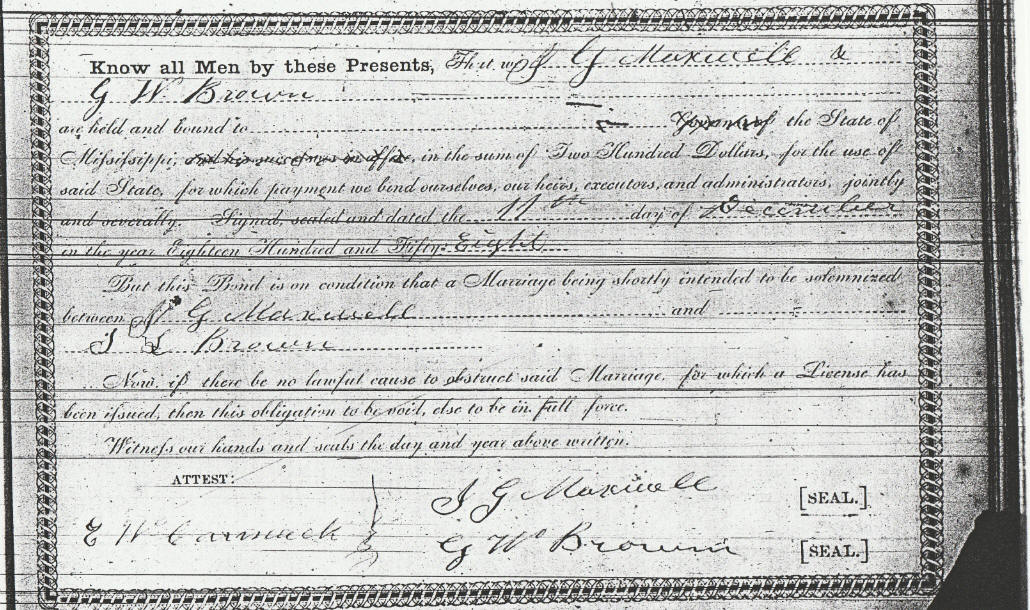 Know all Men by these Presents, That we J G Maxwell &
G W Brown
are held and bound to the State of
Mississippi, in the sum of Two Hundred Dollars, for the use of
said State, for which payment we bind ourselves, our heirs, executors, and administrators, jointly
and severally. Signed, sealed and dated the 11th day of December
in the year Eighteen Hundred and Fifty-Eight
But this Bond is on condition that a Marriage being shortly intended to be solemnized
between J G Maxwell and
S L Brown
Now, if there be no lawful cause to obstruct said Marriage, for which a License has
been issued, then this obligation to be void, else to be in full force.
Witness our hands and seals the day and year above written.
ATTEST:
J G Maxwell [SEAL.]
E W Carmack G W Brown [SEAL.]